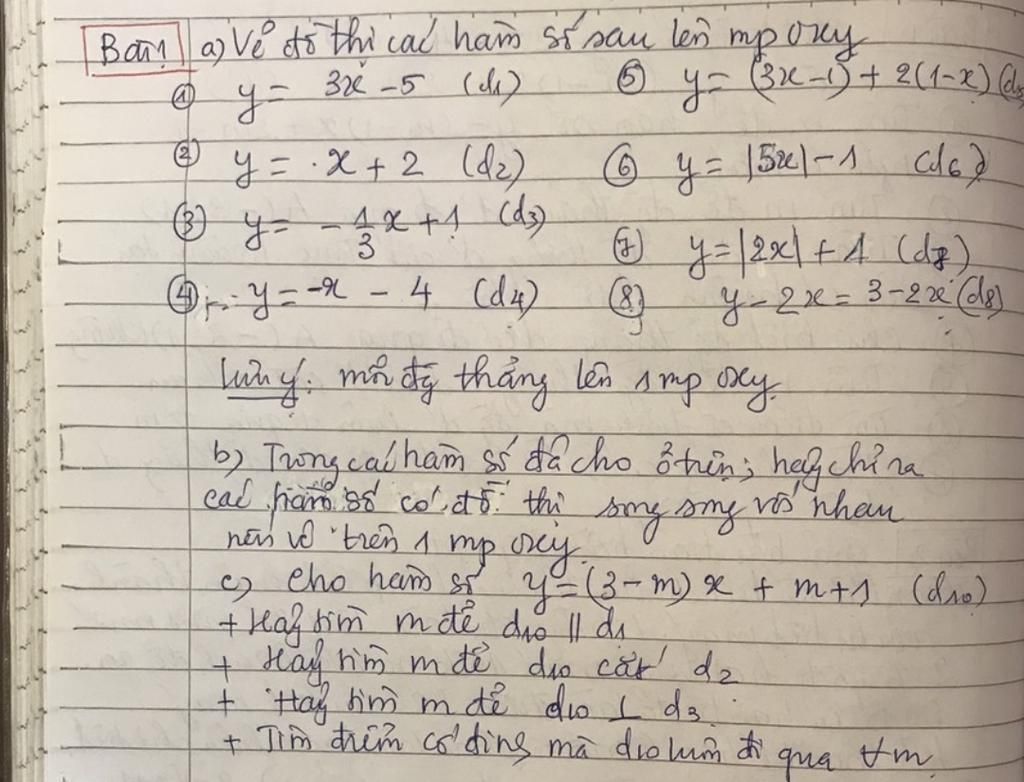 Bài 1 a) Vẽ đồ thị các hàm số sau lên mp Oxy
① y = 3x - 5 (d1) ⑤ y = (3x - 1) + 2(1 - x) (d5)
② y = x + 2 (d2) ⑥ y = |5x| - 1 (d6)
③ y = - 1/3 x + 1 (d3)
⑦ y = |2x| + 1 (d7)
④ y = -x - 4 (d4) ⑧ y - 2x = 3 - 2x (d8)
Lưu ý: mỗi đg thẳng lên 1 mp Oxy.
b) Trong các hàm số đã cho ở trên; hãy chỉ ra
các hàm số có đồ thị song song với nhau
nếu vẽ trên 1 mp Oxy.
c) Cho hàm số y = (3 - m) x + m + 1 (d10)
+ Hãy tìm m để d10 || d1
+ Hãy tìm m để d10 cắt d2
+ Hãy tìm m để d10 ⊥ d3.
+ Tìm điểm cố định mà d10 luôn đi qua ∀m